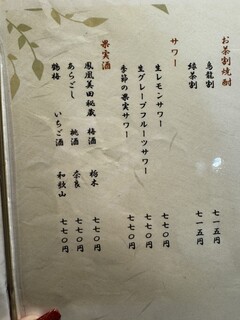 お茶割焼酎
烏龍割 七一五円
緑茶割 七一五円
サワー
生レモンサワー 七七〇円
生グレープフルーツサワー 七七〇円
季節の果実サワー 七七〇円
果実酒
鳳凰美田秘蔵 梅酒 栃木 七七〇円
あらごし 桃酒 奈良 七七〇円
鶴梅 いちご酒 和歌山 七七〇円